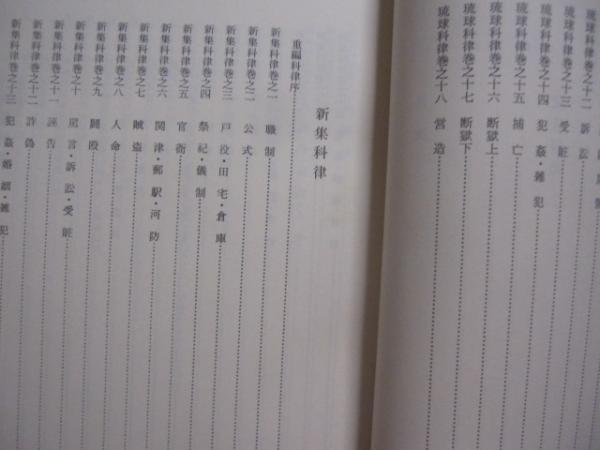 琉球科律巻之十二　訴訟
琉球科律巻之十三　受贓
琉球科律巻之十四　犯姦・雑犯
琉球科律巻之十五　捕亡
琉球科律巻之十六　断獄上
琉球科律巻之十七　断獄下
琉球科律巻之十八　営造
新集科律
重編科律序
新集科律巻之一　職制
新集科律巻之二　公式
新集科律巻之三　戸役・田宅・倉庫
新集科律巻之四　祭祀・儀制
新集科律巻之五　宮衛
新集科律巻之六　関津・郵駅・河防
新集科律巻之七　賊盗
新集科律巻之八　人命
新集科律巻之九　闘殴
新集科律巻之十　罵言・訴訟・受贓
新集科律巻之十一　誣告
新集科律巻之十二　詐偽
新集科律巻之十三　犯姦・婚姻・雑犯